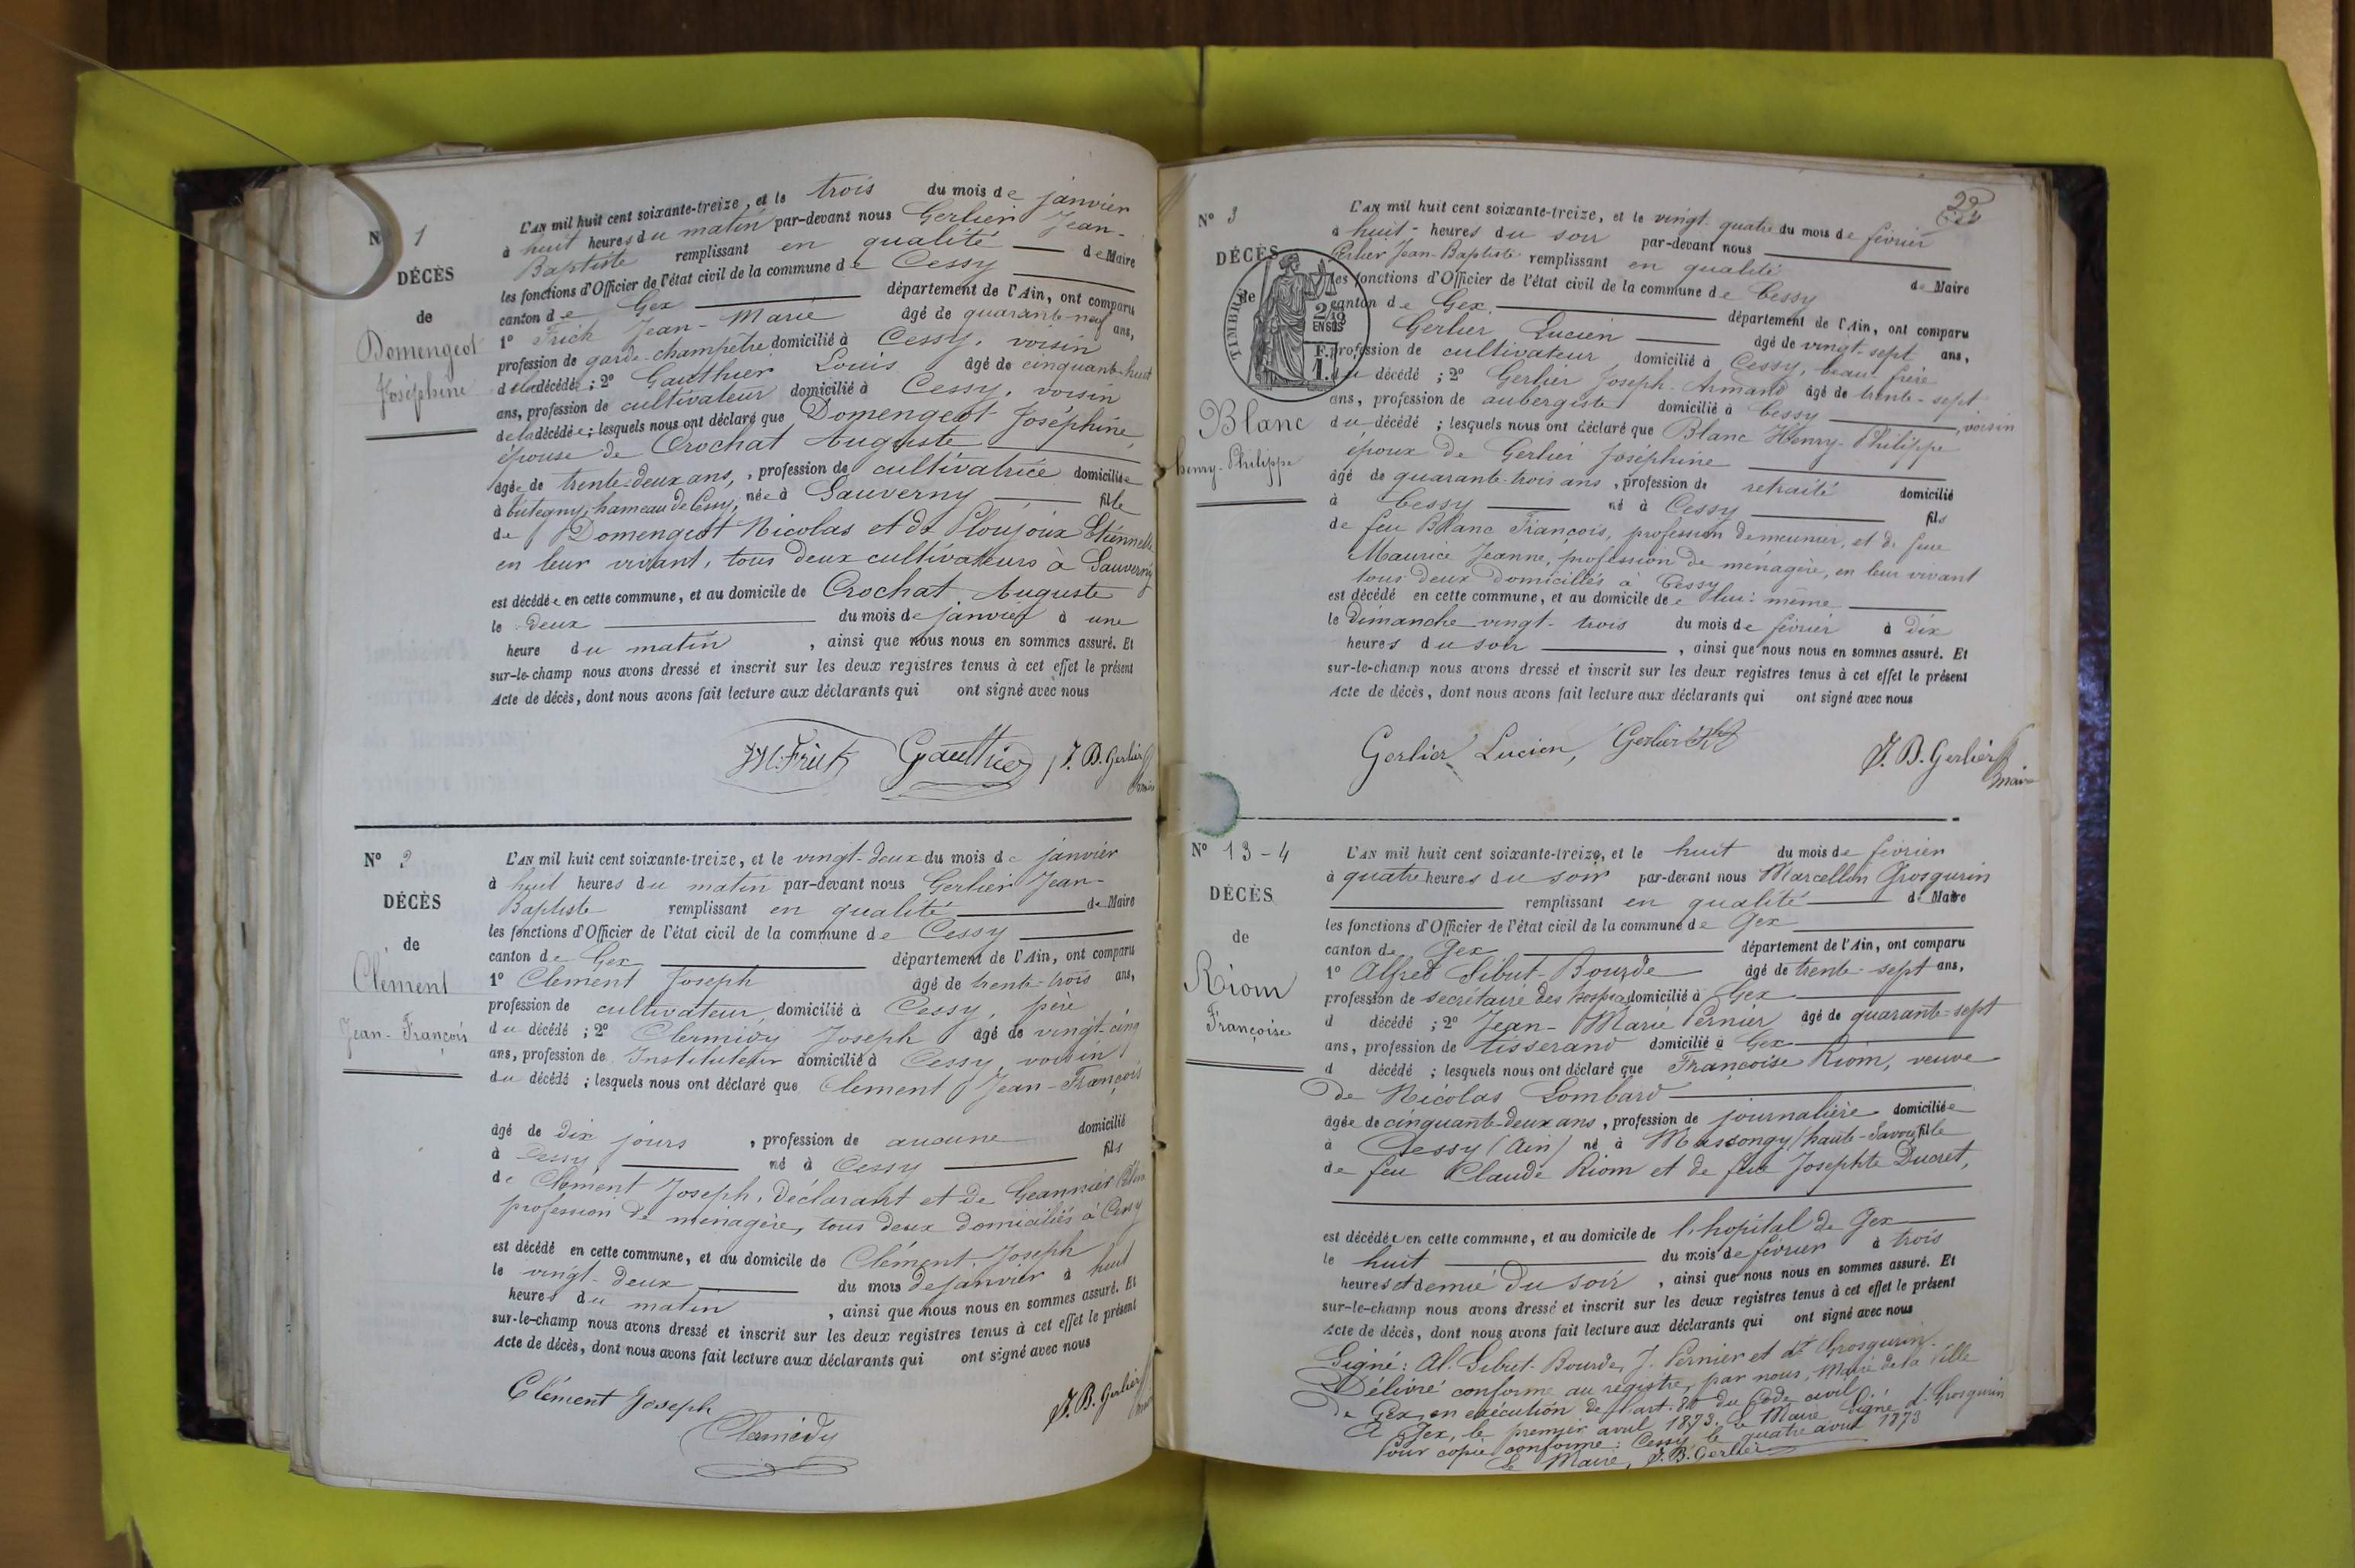 N° 1
DÉCÈS
de
Domengeot
Joséphine
L'AN mil huit cent soixante-treize, et le trois du mois de janvier
à huit heures du matin par-devant nous Gerlier Jean-
Baptiste remplissant en qualité de Maire
les fonctions d'Officier de l'état civil de la commune de Cessy
canton de Gex département de l'Ain, ont comparu
1° Frick Jean-Marie âgé de quarante-neuf ans,
profession de garde-champêtre domicilié à Cessy, voisin
de la décédée ; 2° Gauthier Louis âgé de cinquante-huit
ans, profession de cultivateur domicilié à Cessy, voisin
de la décédée ; lesquels nous ont déclaré que Domengeot Joséphine,
épouse de Crochat Auguste
âgée de trente-deux ans, profession de cultivatrice domiciliée
à Tutegny, hameau de Cessy, née à Sauverny fille
de Domengeot Nicolas et de Ploujoux Etiennette
en leur vivant, tous deux cultivateurs à Sauverny
est décédée en cette commune, et au domicile de Crochat Auguste
le deux du mois de janvier à une
heure du matin, ainsi que nous nous en sommes assuré. Et
sur-le-champ nous avons dressé et inscrit sur les deux registres tenus à cet effet le présent
Acte de décès, dont nous avons fait lecture aux déclarants qui ont signé avec nous
JM Frick Gauthier J. B. Gerlier
maire
N° 2
DÉCÈS
de
Clément
Jean-François
L'AN mil huit cent soixante-treize, et le vingt-deux du mois de janvier
à huit heures du matin par-devant nous Gerlier Jean-
Baptiste remplissant en qualité de Maire
les fonctions d'Officier de l'état civil de la commune de Cessy
canton de Gex département de l'Ain, ont comparu
1° Clément Joseph âgé de trente-trois ans,
profession de cultivateur, domicilié à Cessy, père
du décédé ; 2° Clermidy Joseph âgé de vingt-cinq
ans, profession de Instituteur domicilié à Cessy, voisin
du décédé ; lesquels nous ont déclaré que Clément Jean-François
âgé de dix jours, profession de aucune domicilié
à Cessy né à Cessy fils
de Clément Joseph, déclarant et de Geannier
profession de ménagère, tous deux domiciliés à Cessy
est décédé en cette commune, et au domicile de Clément Joseph
le vingt-deux du mois de janvier à huit
heures du matin, ainsi que nous nous en sommes assuré. Et
sur-le-champ nous avons dressé et inscrit sur les deux registres tenus à cet effet le présent
Acte de décès, dont nous avons fait lecture aux déclarants qui ont signé avec nous
Clément Joseph J. B. Gerlier
Clermidy
22
N° 3
DÉCÈS
de
TIMBRE
2/10
EN SUS
1 F.
Blanc
henry-Philippe
L'AN mil huit cent soixante-treize, et le vingt-quatre du mois de février
à huit heures du soir par-devant nous
Gerlier Jean-Baptiste remplissant en qualité de Maire
les fonctions d'Officier de l'état civil de la commune de Cessy
canton de Gex département de l'Ain, ont comparu
Gerlier Lucien âgé de vingt-sept ans,
profession de cultivateur domicilié à Cessy, beau-frère
du décédé ; 2° Gerlier Joseph-Armand âgé de trente-sept
ans, profession de aubergiste domicilié à Cessy, voisin
du décédé ; lesquels nous ont déclaré que Blanc Henry-Philippe
époux de Gerlier Joséphine
âgé de quarante-trois ans, profession de retraité domicilié
à Cessy né à Cessy fils
de feu Blanc François, profession de meunier, et de feue
Maurice Jeanne, profession de ménagère, en leur vivant
tous deux domiciliés à Cessy
est décédé en cette commune, et au domicile de lui-même
le dimanche vingt-trois du mois de février à dix
heures du soir, ainsi que nous nous en sommes assuré. Et
sur-le-champ nous avons dressé et inscrit sur les deux registres tenus à cet effet le présent
Acte de décès, dont nous avons fait lecture aux déclarants qui ont signé avec nous
Gerlier Lucien, Gerlier J. B. Gerlier
maire
N° 13-4
DÉCÈS
de
Riom
Françoise
L'AN mil huit cent soixante-treize, et le huit du mois de février
à quatre heures du soir par-devant nous Marcellin Grosgurin
remplissant en qualité de Maire
les fonctions d'Officier de l'état civil de la commune de Gex
canton de Gex département de l'Ain, ont comparu
1° Alfred Sibut-Bourde âgé de trente-sept ans,
profession de secrétaire des hospices domicilié à Gex
d décédé ; 2° Jean-Marie Pernier âgé de quarante-sept
ans, profession de tisserand domicilié à Gex
d décédé ; lesquels nous ont déclaré que Françoise Riom, veuve
de Nicolas Lombard
âgée de cinquante-deux ans, profession de journalière domiciliée
à Cessy (Ain) né à Massongy (haute-Savoie) fille
de feu Claude Riom et de feue Josephte Ducret,
est décédée en cette commune, et au domicile de l'hopital de Gex
le huit du mois de février à trois
heures et demie du soir, ainsi que nous nous en sommes assuré. Et
sur-le-champ nous avons dressé et inscrit sur les deux registres tenus à cet effet le présent
Acte de décès, dont nous avons fait lecture aux déclarants qui ont signé avec nous
Signé : Al. Sibut-Bourde, J. Pernier et Mt Grosgurin.
Délivré conforme au registre, par nous, Maire de la Ville
de Gex, en exécution de l'art. 80 du Code civil.
A Gex, le premier avril 1873. Le Maire Signé Mt Grosgurin
Pour copie conforme : Cessy, le quatre avril 1873
Le Maire, J. B. Gerlier